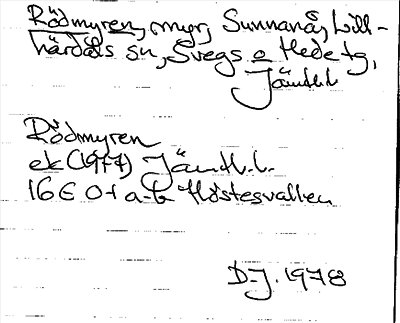 Rödmyren, myr, Sunnanå, Lill-
härdals sn, Svegs o Hede tg,
Jämtl.l
Rödmyren
ek (1977) Jämtl.l.
16 E 0-1 a-b Höstesvallen
D-J. 1978